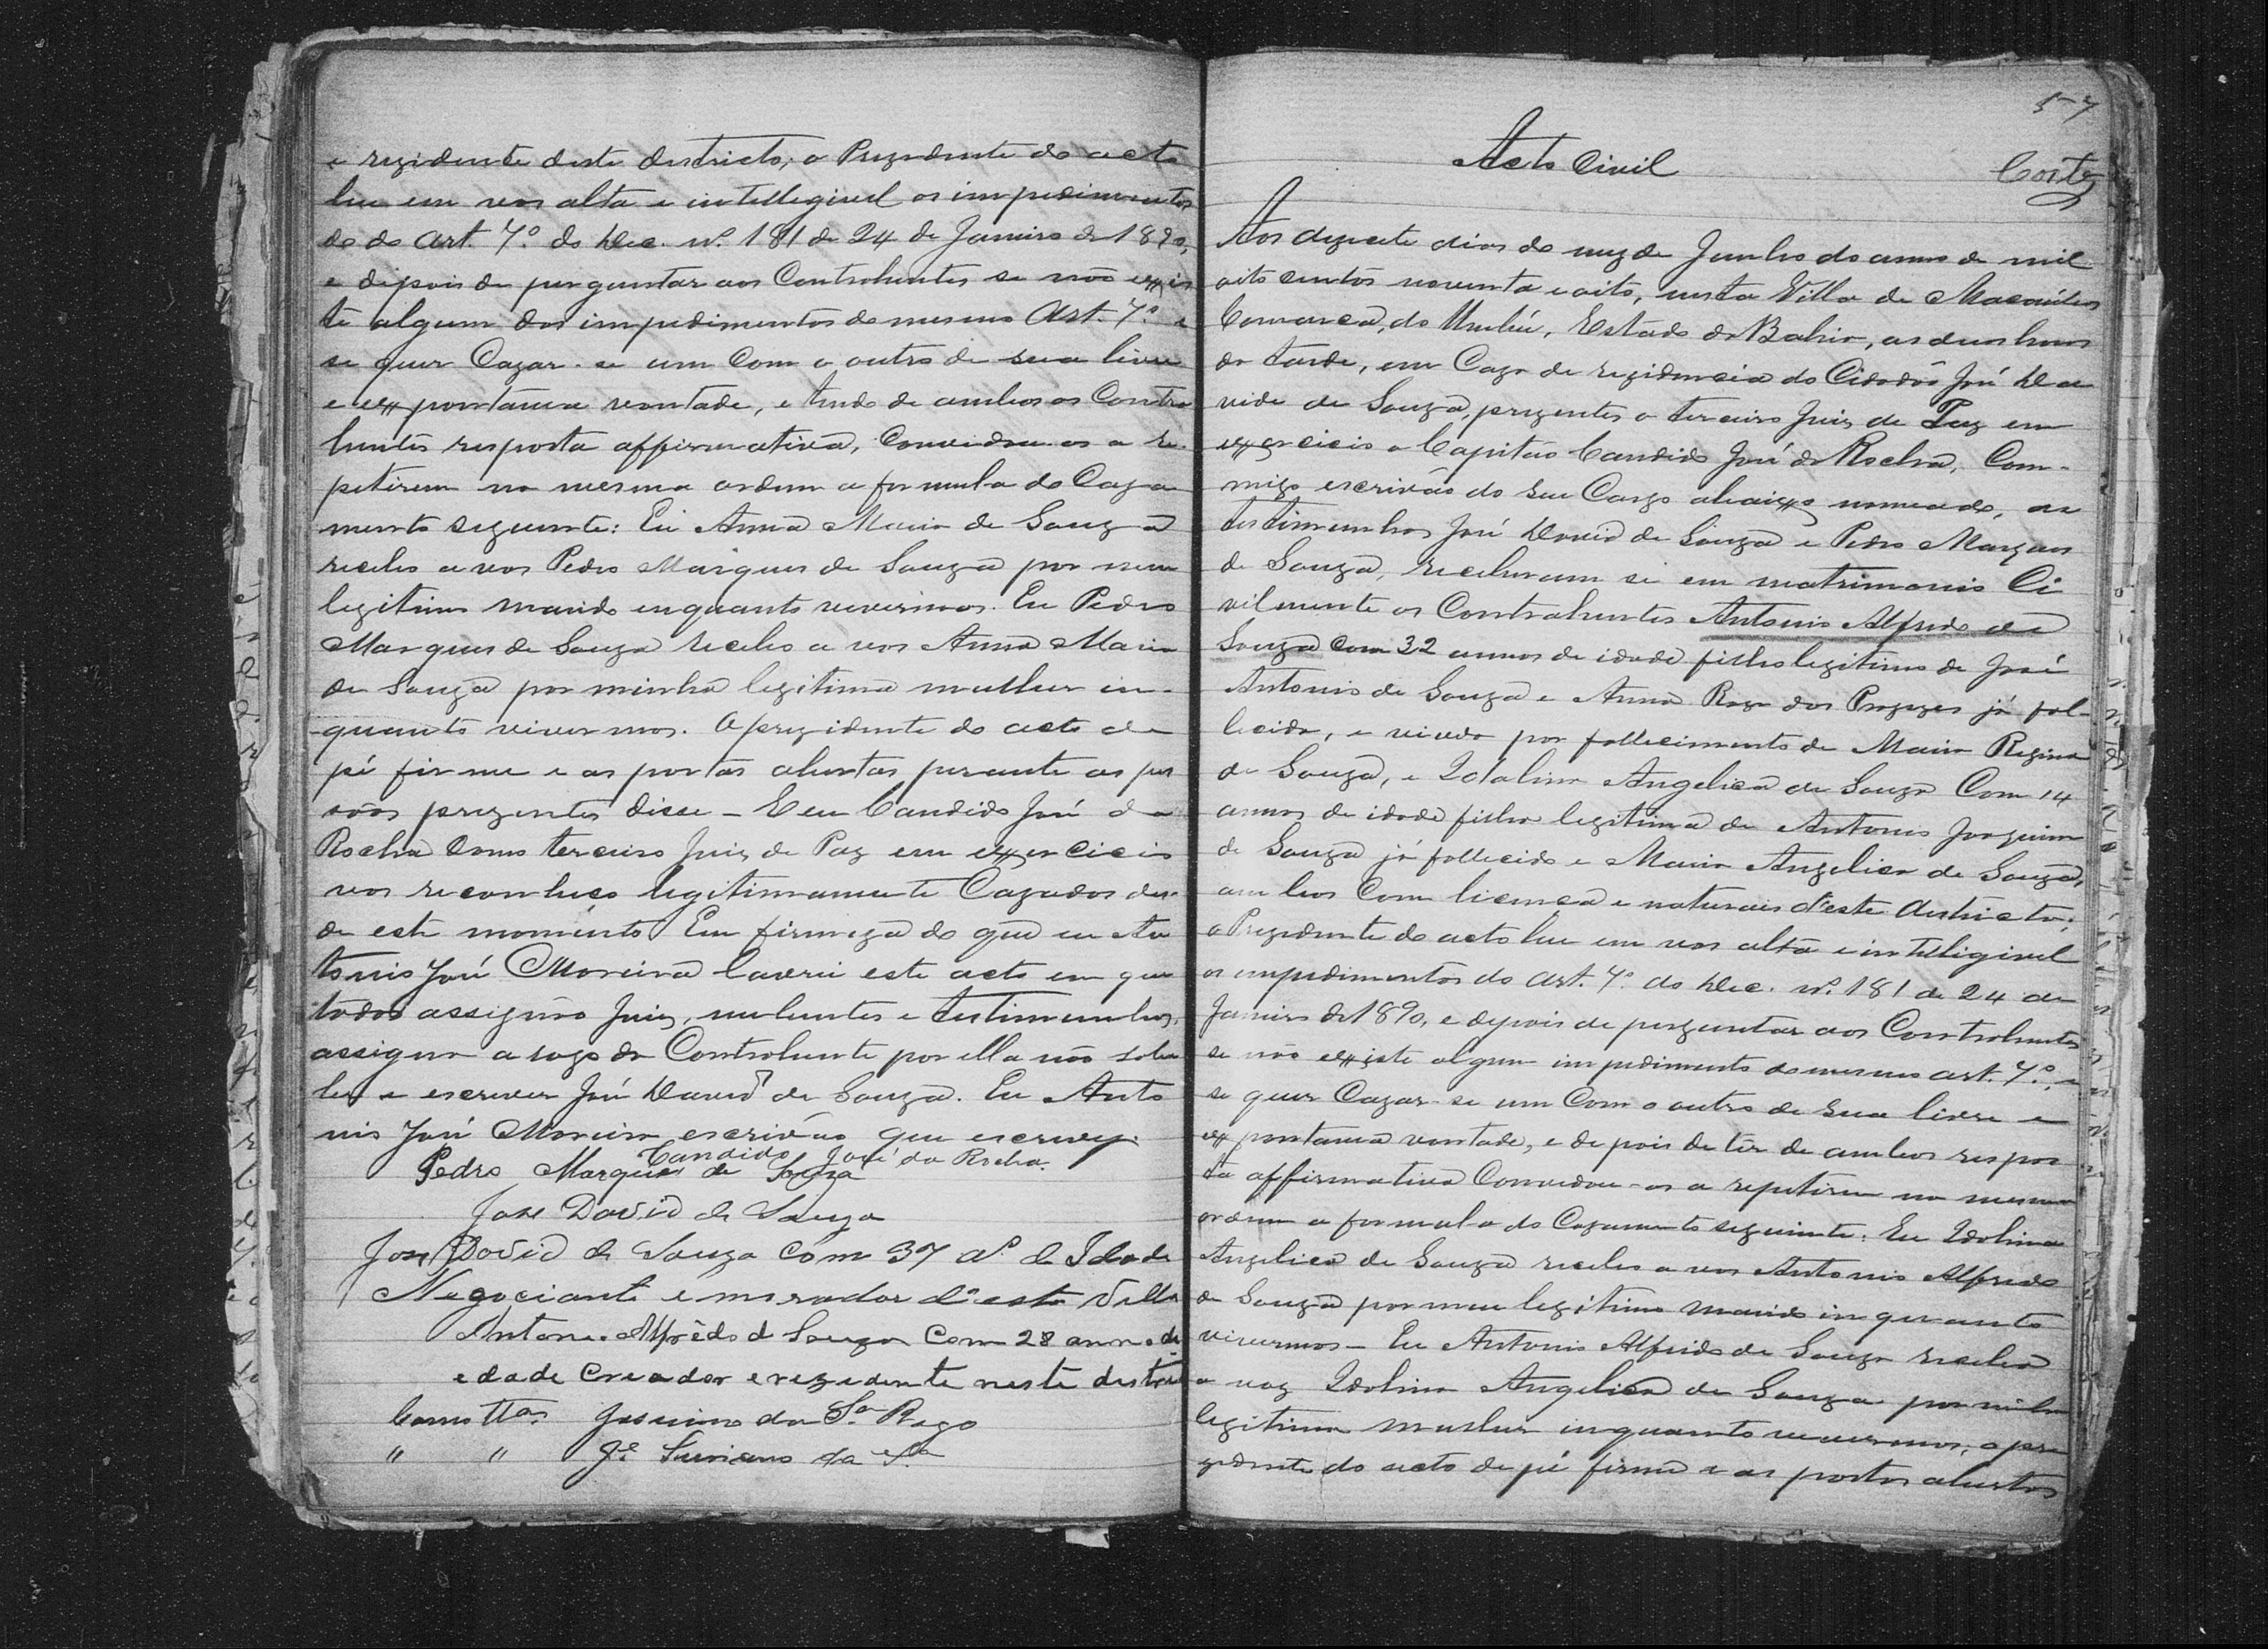 e rezidente deste destricto; o Prezidente do acto
leu em vos alta e intellegivel os impedimentos
do do Art. 7º do Dec. nº 181 de 24 de Janeiro de 1890,
e dipois de perguntar aos Contrahentes se não exis
te algum dos impedimentos do mesmo Art. 7º e
se quer Cazar-se um Com o outro de sua livre
e expontanea vontade, e tendo de ambos os Contra
hentes resposta affirmativa, Convidou-os a re-
petirem na mesma ordem a formula do Caza
mento seguinte: Eu Anna Maria de Souza
recebo a vos Pedro Marques de Souza por meu
legitimo marido enquanto vivermos. Eu Pedro
Marques de Souza recebo a vos Anna Maria
de Souza por minha legitima mulher in-
quanto vivermos. O prezidente do acto de
pé firme e as portas abertas perante as pes
sôas prezentes disse - E eu Candido José da
Rocha Como terceiro Juis de Paz em exercicio
vos reconheço legitimamente Cazados des-
de este momento Em firmeza do que eu An
tonio José Moreira lavrei este acto em que
todos assignão Juis, nubentes e testimunhas,
assigna a rogo da Contrahente por ella não saber
ler e escrever José David de Souza. Eu Anto
nio José Moreira escrivão que escrevy.
Candido José da Rocha.
Pedro Marques de Souza
Jose David de Souza
Jose David de Souza com 37 aº de Idade
Negociante e morador d'esta Villa
Antonio Alfrêdo d Souza Com 28 annos de
edade Creador e rezedente neste destricto
Como ttª Jesuino da Sª Rego
" " Jº Suriano da Sª
57
Acto Civil
Cortes
Aos dezesete dias do mez de Junho do anno de mil
oito centos noventa e oito, nesta Villa de Macaúbas
Comarca, do Urubú, Estado da Bahia, as duas horas
da tarde, em Caza de rezidencia do Cidadão José Da
vide de Souza, prezentes o terceiro Juis de Paz em
exercicio o Capitão Candido José da Rocha, Com-
migo escrivão do seu Cargo abaixo nomeado, as
testimunhas José David de Souza e Pedro Marques
de Souza, receberam se em matrimonio Ci
vilmente os Contrahentes Antonio Alfredo de
Souza com 32 annos de idade filho legitimo de José
Antonio de Souza e Anna Roza dos Prazeres já fal-
lecida, e viuvo por fallecimento de Maria Regina
de Souza, e Idalina Angelica de Souza Com 14
annos de idade filha legitima de Antonio Joaquim
de Souza já fallecido e Maria Angelica de Souza,
ambos Com licença e naturais d'este destricto;
o Prezidente do acto leu em vos alta e intelligivel
os impedimentos do Art. 7º do Dec. nº 181 de 24 de
Janeiro de 1890, e depois de perguntar aos Contrahentes
se não existe algum impedimento do mesmo art. 7º, e
se quer Cazar-se um Com o outro de sua livre e
expontanea vontade, e depois de têr de ambos respos
ta affirmativa Convidou-os a repitirem na mesma
ordem a formula do Cazamento seguinte: Eu Idalina
Angelica de Souza recebo a vos Antonio Alfredo
de Souza por meu legitimo marido inquanto
vivermos - Eu Antonio Alfredo de Souza recebo
a voz Idalina Angelica de Souza por minha
legitima mulher inquanto vivermos, o pre
zidente do acto de pé firme e as portas abertas